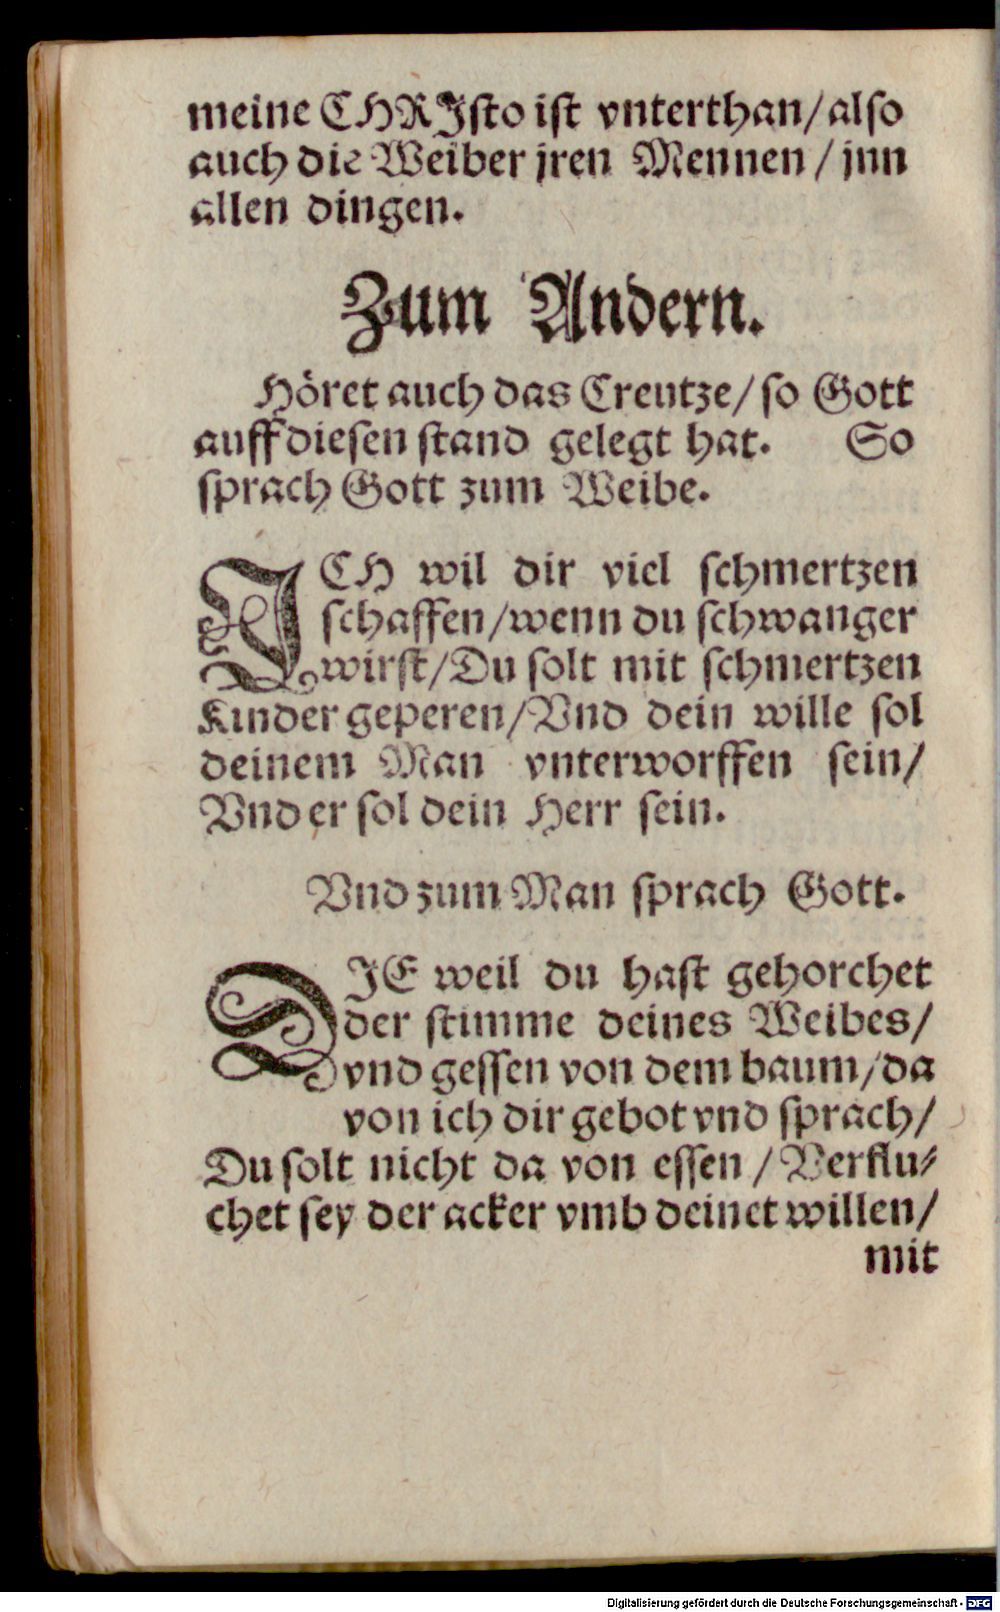 meine CHRIsto ist vnterthan/also
auch die Weiber jren Mennen / jnn
allen dingen.
Zum Andern.
Höret auch das Creutze/so Gott
auff diesen stand gelegt hat. So
sprach Gott zum Weibe.
ICH wil dir viel schmertzen
schaffen/wenn du schwanger
wirst/Du solt mit schmertzen
Kinder geperen/Vnd dein wille sol
deinem Man vnterworffen sein/
Vnd er sol dein Herr sein.
Vnd zum Man sprach Gott.
DIE weil du hast gehorchet
der stimme deines Weibes/
vnd gessen von dem baum/da
von ich dir gebot vnd sprach/
Du solt nicht da von essen / Verflu⸗
chet sey der acker vmb deinet willen/
mit
Digitalisierung gefördert durch die Deutsche Forschungsgemeinschaft - DFG